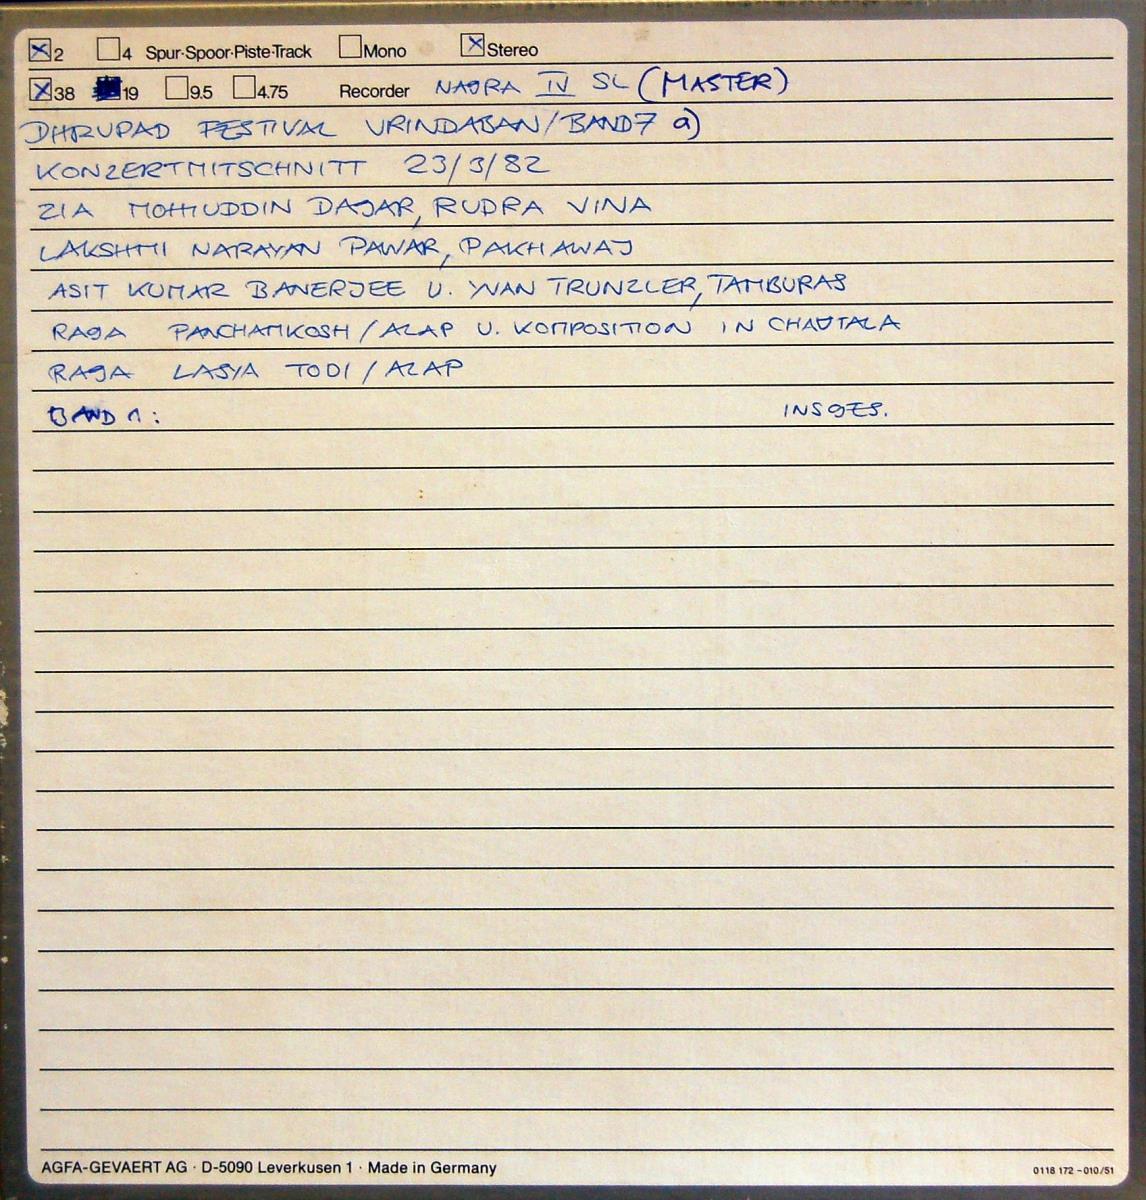 ☒2 ☐4 Spur·Spoor·Piste·Track ☐Mono ☒Stereo
☒38 ■19 ☐9.5 ☐4.75 Recorder NAGRA IV SL (MASTER)
DHRUPAD FESTIVAL VRINDABAN/BAND7 a)
KONZERTMITSCHNITT 23/3/82
ZIA MOHIUDDIN DAGAR, RUDRA VINA
LAKSHMI NARAYAN PAWAR, PAKHAWAJ
ASIT KUMAR BANERJEE U. YVAN TRUNZLER, TAMBURAS
RAGA PANCHAMKOSH/ALAP U. KOMPOSITION IN CHAUTALA
RAGA LASYA TODI/ALAP
BAND 1: INSGES.
AGFA-GEVAERT AG · D-5090 Leverkusen 1 · Made in Germany 0118 172 - 010/51